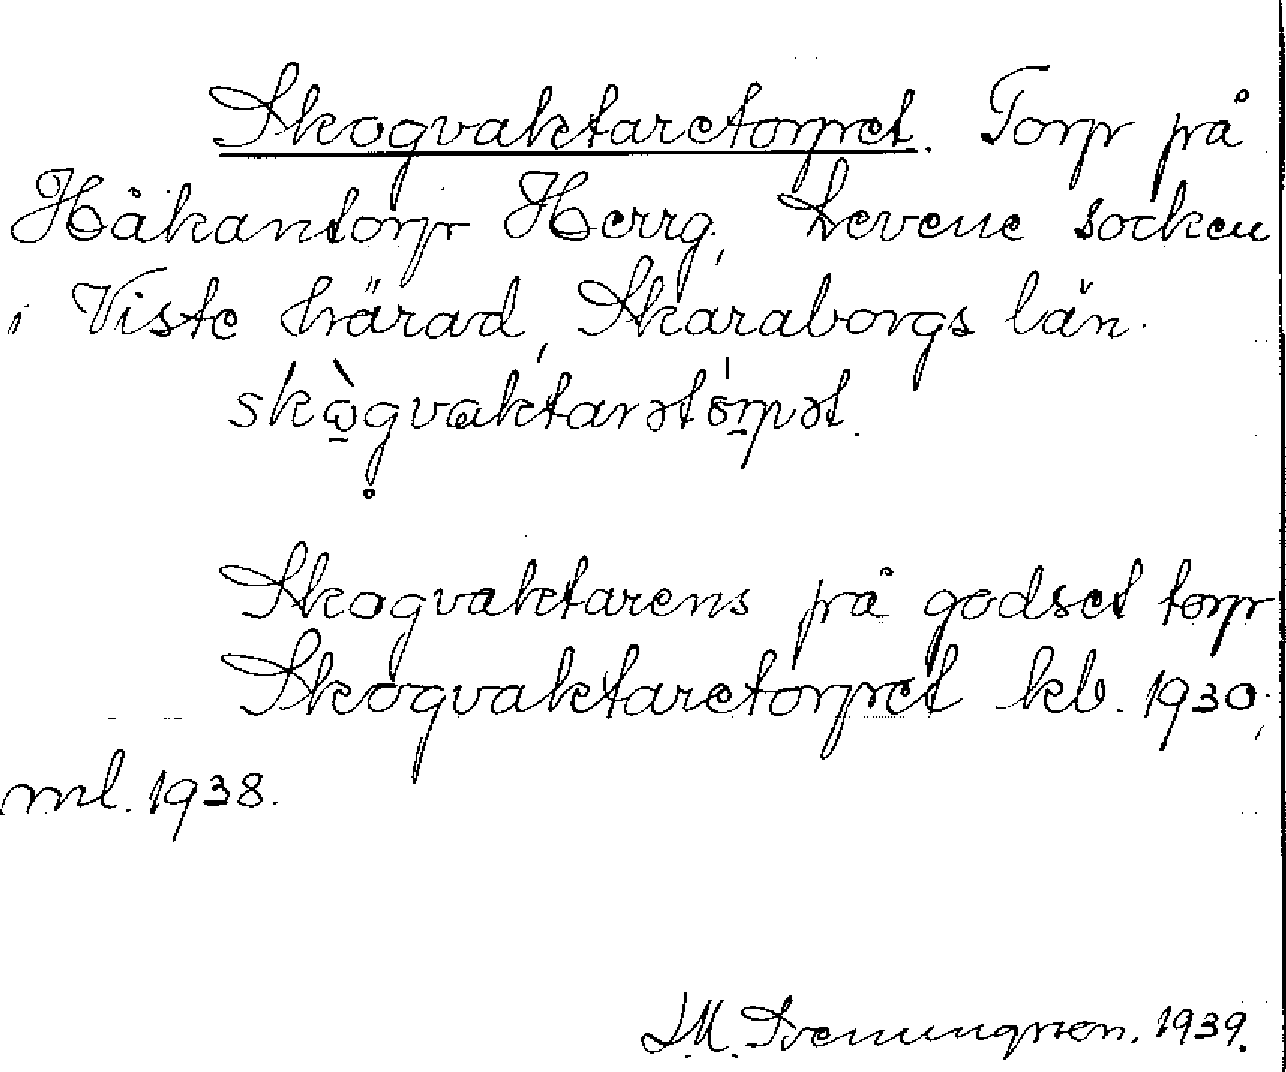 Skogvaktaretorpet. Torp på
Håkantorp Herrg, Levene socken
i Viste härad, Skaraborgs län.
skὼ̱g̥vaktarətö́rpət.
Skogvaktarens på godset torp
Skogvaktaretorpet kb. 1930,
ml. 1938.
1939.